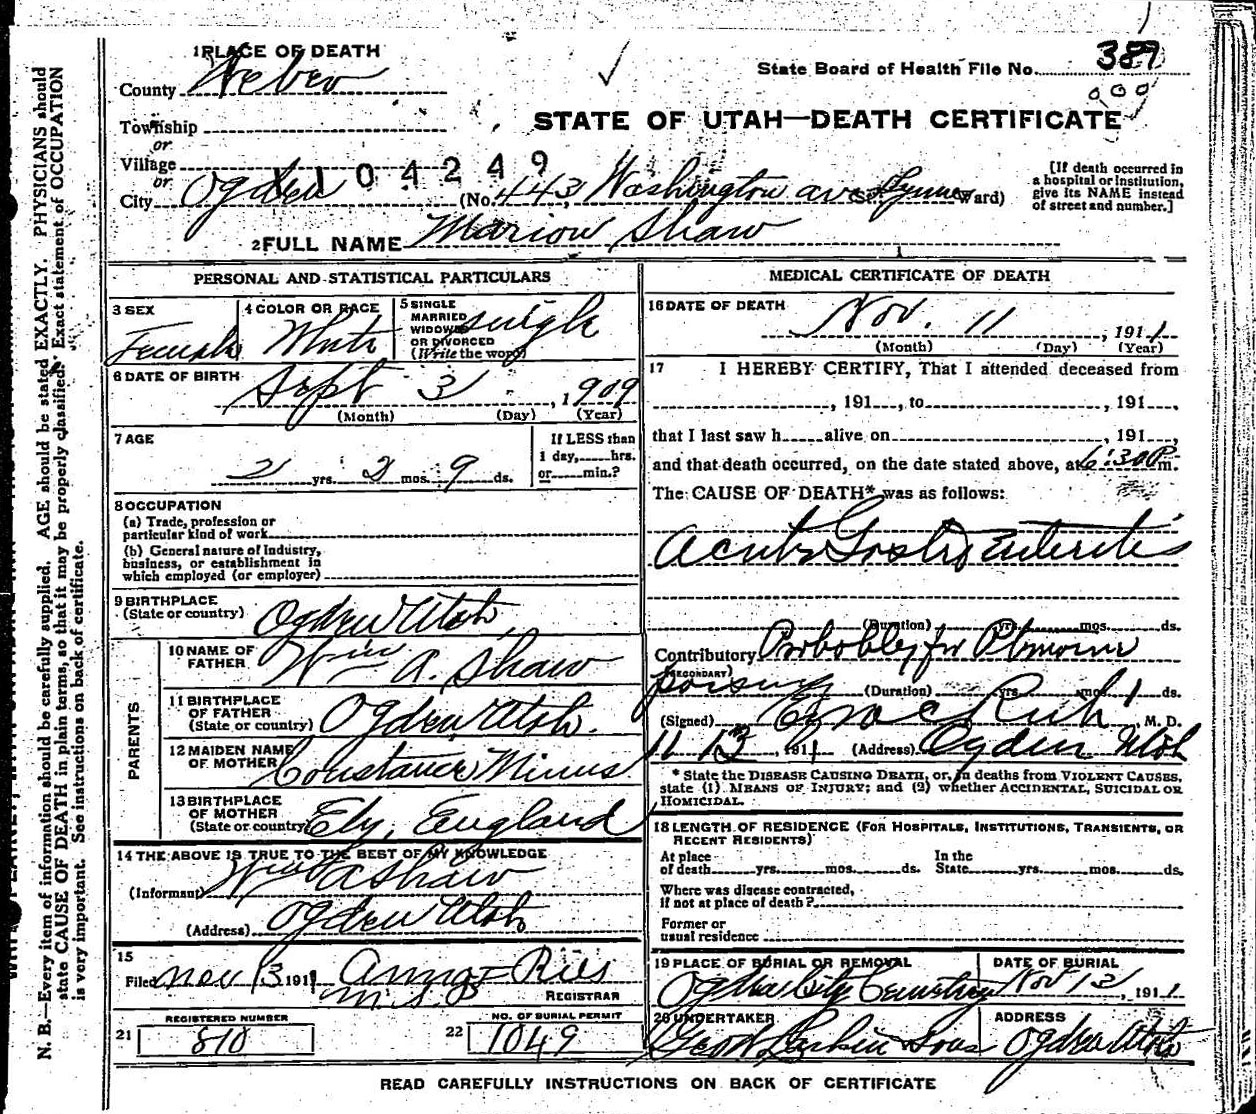 1 PLACE OF DEATH
County Weber
State Board of Health File No. 389
STATE OF UTAH—DEATH CERTIFICATE
Township
or
Village
1104249
or
City Ogden (No. 443, Washington ave St. Lynne Ward)
[If death occurred in
a hospital or institution,
give its NAME instead
of street and number.]
2 FULL NAME Marion Shaw
PERSONAL AND STATISTICAL PARTICULARS
3 SEX Female
4 COLOR OR RACE White
5 SINGLE
MARRIED
WIDOWED
OR DIVORCED
(Write the word)
single
6 DATE OF BIRTH Sept 3, 1909
(Month) (Day) (Year)
7 AGE
2 yrs. 2 mos. 9 ds.
If LESS than
1 day,.....hrs.
or.....min.?
8 OCCUPATION
(a) Trade, profession or
particular kind of work
(b) General nature of industry,
business, or establishment in
which employed (or employer)
9 BIRTHPLACE
(State or country) Ogden Utah
PARENTS
10 NAME OF
FATHER Wm A. Shaw
11 BIRTHPLACE
OF FATHER
(State or country) Ogden, Utah.
12 MAIDEN NAME
OF MOTHER Constance Minns
13 BIRTHPLACE
OF MOTHER
(State or country) Ely, England
14 THE ABOVE IS TRUE TO THE BEST OF MY KNOWLEDGE
(Informant) Wm A Shaw
(Address) Ogden Utah
15
Filed Nov 13 1911 Anna F Ries
REGISTRAR
21 REGISTERED NUMBER
810
22 NO. OF BURIAL PERMIT
1049
MEDICAL CERTIFICATE OF DEATH
16 DATE OF DEATH
Nov. 11, 1911
(Month) (Day) (Year)
17 I HEREBY CERTIFY, That I attended deceased from
, 191 , to , 191 ,
that I last saw h alive on , 191 ,
and that death occurred, on the date stated above, at 6:30 P m.
The CAUSE OF DEATH* was as follows:
Acute Gastro Enteritis
(Duration) yrs. mos. ds.
Contributory Probably for Ptomaine
(SECONDARY)
poisoning (Duration) yrs. mos. 1 ds.
(Signed) Rich, M. D.
11 13, 1911 (Address) Ogden Utah
* State the DISEASE CAUSING DEATH, or, in deaths from VIOLENT CAUSES,
state (1) MEANS OF INJURY; and (2) whether ACCIDENTAL, SUICIDAL OR
HOMICIDAL.
18 LENGTH OF RESIDENCE (FOR HOSPITALS, INSTITUTIONS, TRANSIENTS, OR
RECENT RESIDENTS)
At place
of death yrs. mos. ds.
In the
State yrs. mos. ds.
Where was disease contracted,
if not at place of death?
Former or
usual residence
19 PLACE OF BURIAL OR REMOVAL
Ogden City Cemetery
DATE OF BURIAL
Nov 13, 1911
20 UNDERTAKER
Geo W Larkin Sons
ADDRESS
Ogden Utah
READ CAREFULLY INSTRUCTIONS ON BACK OF CERTIFICATE
N. B.—Every item of information should be carefully supplied. AGE should be stated EXACTLY. PHYSICIANS should
state CAUSE OF DEATH in plain terms, so that it may be properly classified. Exact statement of OCCUPATION
is very important. See instructions on back of certificate.